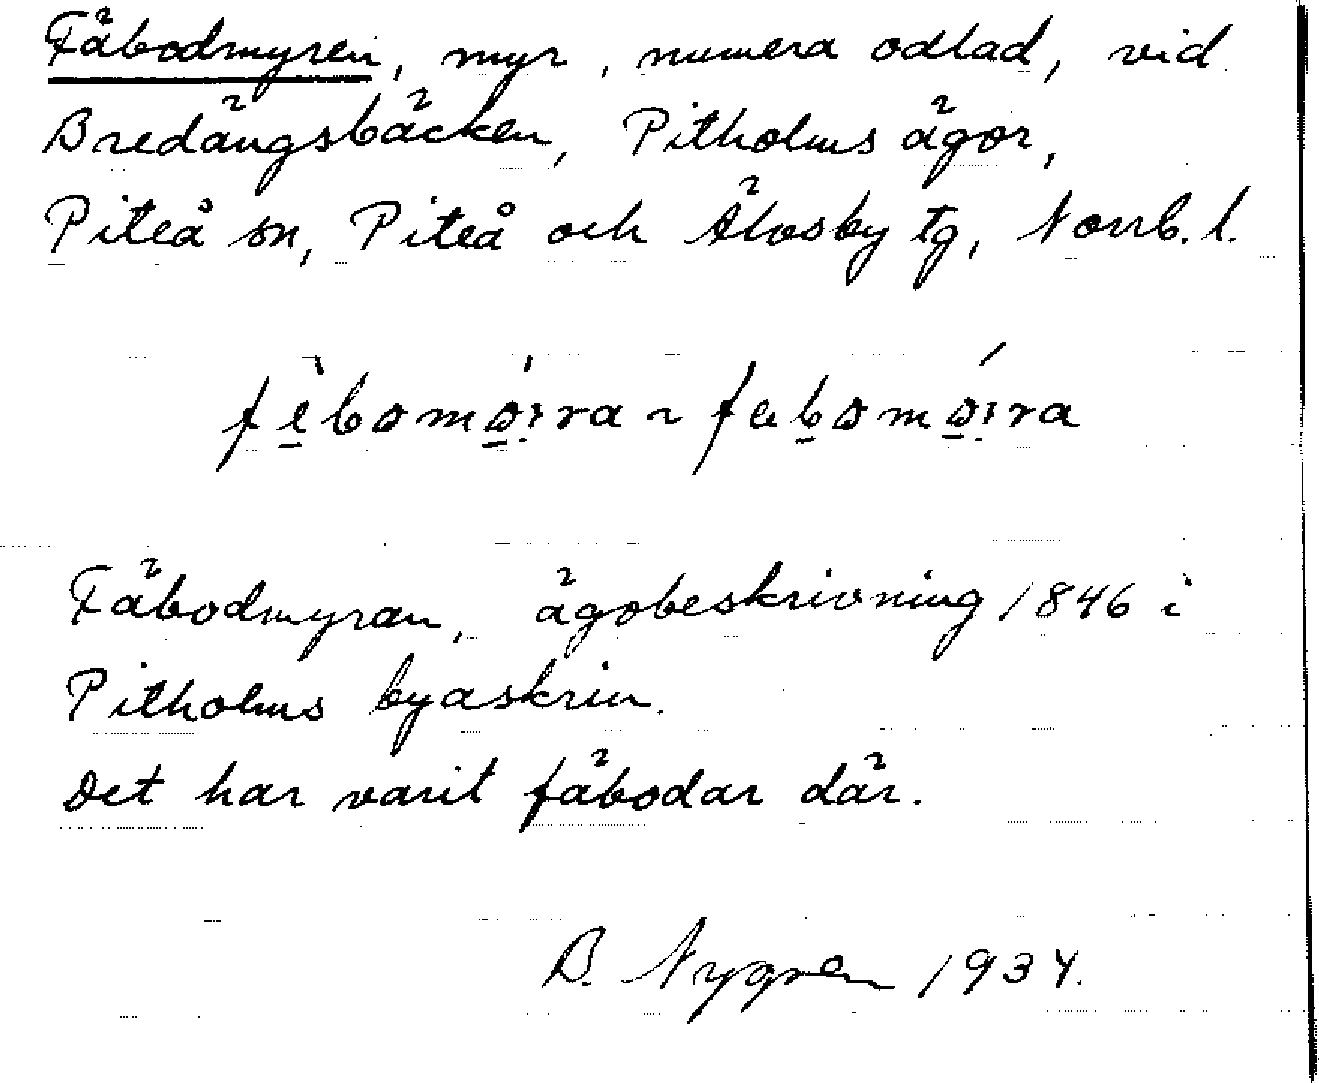 Fäbodmyren, myr, numera odlad, vid
Bredängsbäcken, Pitholms ägor,
Piteå sn, Piteå och Älvsby tg, Norrb. l.
Fäbodmyran, ägobeskrivning 1846 i
Pitholms byaskrin.
Det har varit fäbodar där.
B. Nygren 1934.